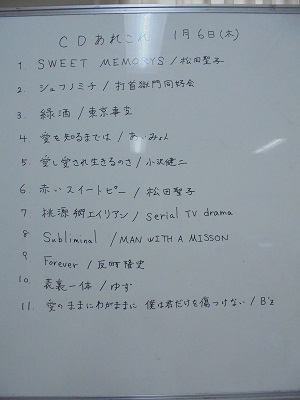 CDあれこれ 1月6日(木)
1. SWEET MEMORYS / 松田聖子
2. シュフノミチ / 打首獄門同好会
3. 緑酒 / 東京事変
4. 愛を知るまでは / あいみょん
5. 愛し愛され生きるのさ / 小沢健二
6. 赤いスイートピー / 松田聖子
7 桃源郷エイリアン / serial TV drama
8 Subliminal / MAN WITH A MISSON
9 Forever / 反町隆史
10. 表裏一体 / ゆず
11. 愛のままにわがままに 僕は君だけを傷つけない / B'z